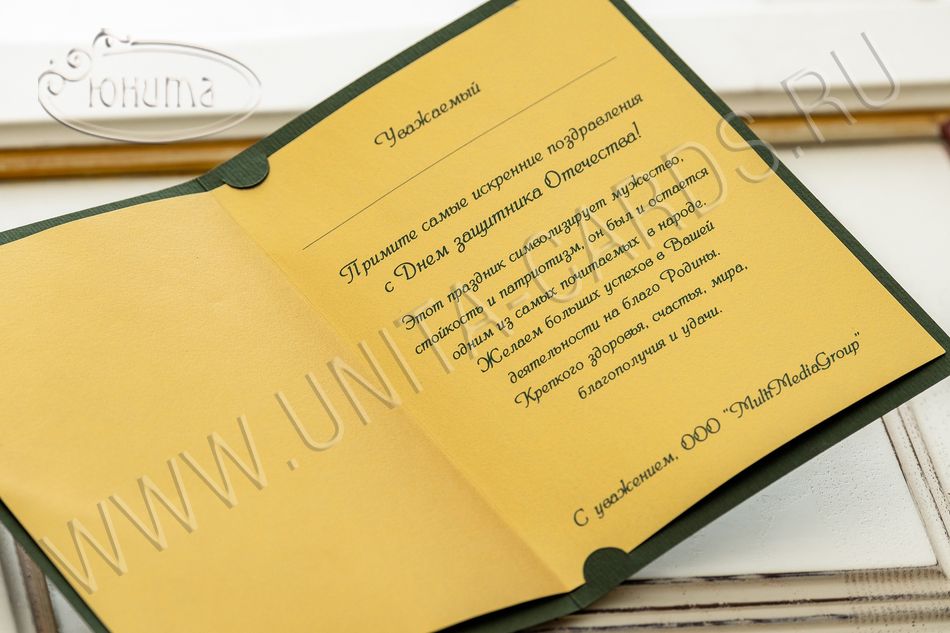 Юнита
Уважаемый
Примите самые искренние поздравления
с Днем защитника Отечества!
Этот праздник символизирует мужество,
стойкость и патриотизм, он был и остается
одним из самых почитаемых в народе.
Желаем больших успехов в Вашей
деятельности на благо Родины.
Крепкого здоровья, счастья, мира,
благополучия и удачи.
С уважением, ООО "MultiMediaGroup"
WWW.UNITA-CARDS.RU